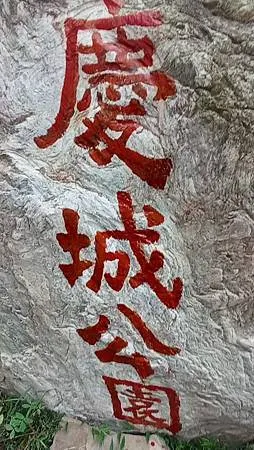 慶城公園